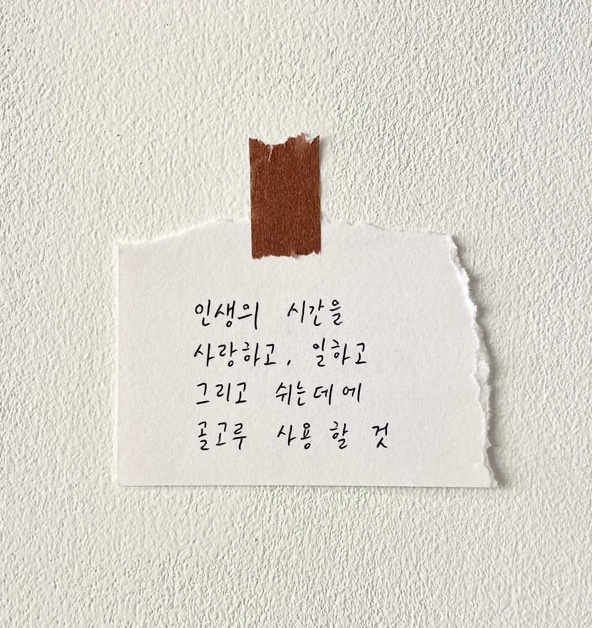 인생의 시간을
사랑하고, 일하고
그리고 쉬는데에
골고루 사용 할 것